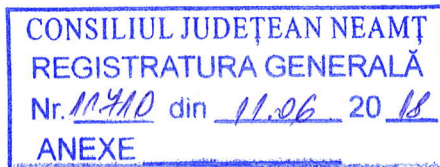 CONSILIUL JUDEȚEAN NEAMȚ
REGISTRATURA GENERALĂ
Nr. 11710 din 11.06 2018
ANEXE